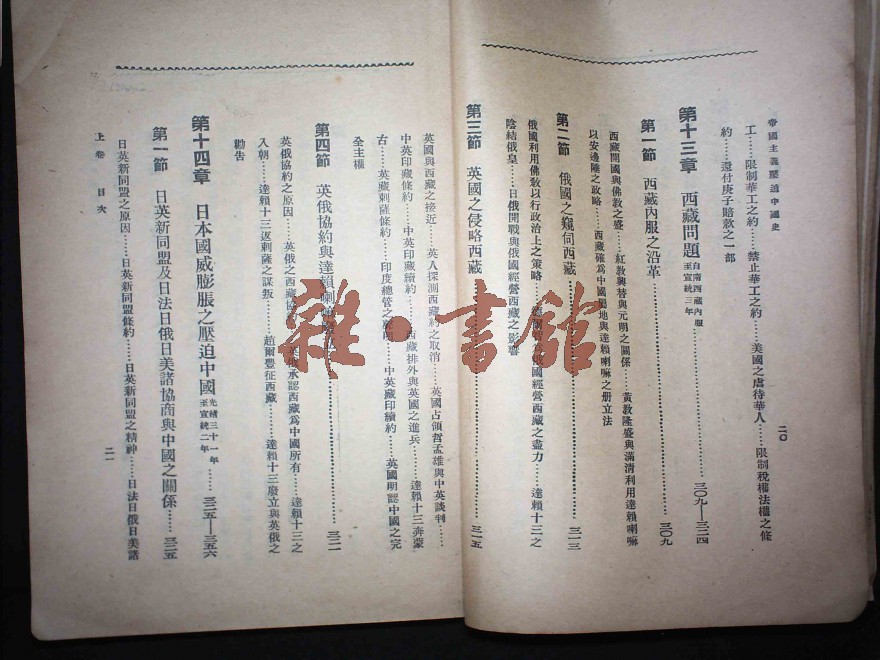 帝國主義壓迫中國史
二〇
工……限制華工之約……禁止華工之約……美國之虐待華人……限制稅權法權之條
約……還付庚子賠款之一部
第十三章 西藏問題 自南西藏內服至宣統三年……三〇九—三二四
第一節 西藏內服之沿革……三〇九
西藏開國與佛敎之盛……紅敎興替與元明之關係……黃敎隆盛與滿清利用達賴喇嘛
以安邊陲之政略……西藏確為中國屬地與達賴喇嘛之册立法
第二節 俄國之窺伺西藏……三一三
俄國利用佛敎以行政治上之策略……經營西藏之盡力……達賴十三之
陰結俄皇……日俄開戰與俄國經營西藏之影響
第三節 英國之侵略西藏……三一五
英國與西藏之接近……英人探測西藏約之取消……英國占領哲孟雄與中英談判……
中英印藏條約……中英印藏續約……西藏排外與英國之進兵……達賴十三奔蒙
古……英藏剌薩條約……印度總管之……中英藏印續約……英國明認中國之完
全主權
第四節 英俄協約與達賴喇嘛……三二一
英俄協約之原因……英俄之西藏協……承認西藏爲中國所有……達賴十三之
入朝……達賴十三返剌薩之謀叛……趙爾豐征西藏……達賴十三廢立與英俄之
勸吿
第十四章 日本國威膨脹之壓迫中國 光緒三十一年至宣統二年……三二五—三五六
第一節 日英新同盟及日法日俄日美諸協商與中國之關係……三二五
日英新同盟之原因……日英新同盟條約……日英新同盟之精神……日法日俄日美諸
上卷 目次
二一
雜·書館